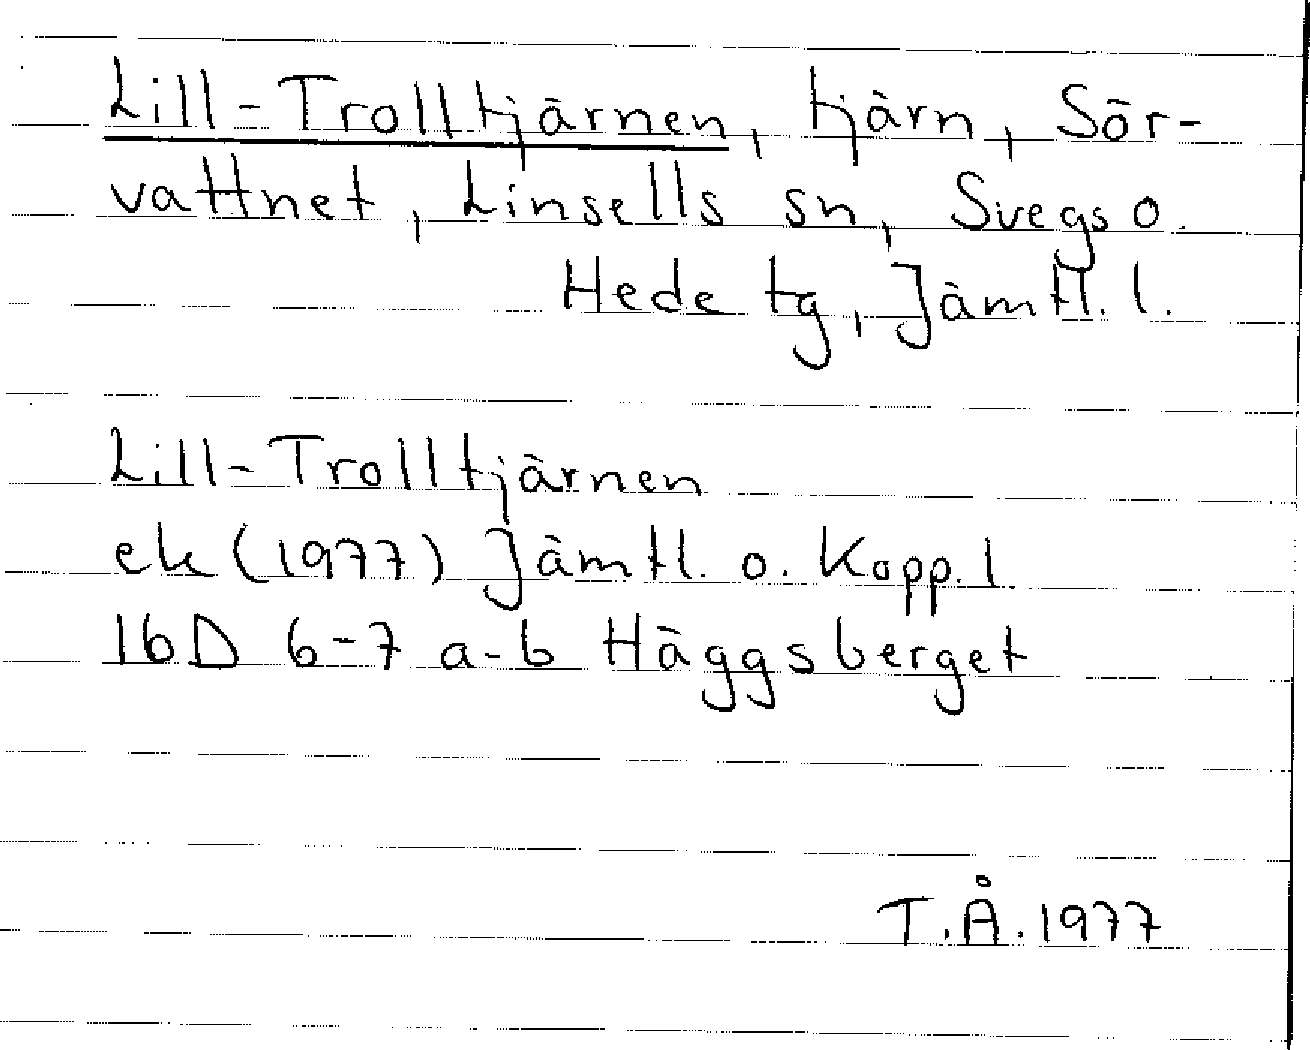 Lill-Trolltjärnen, tjärn, Sör-
vattnet, Linsells sn, Svegs o.
Hede tg, Jämtl. l.
Lill-Trolltjärnen
ek (1977) Jämtl. o. Kopp. l
16D 6-7 a-b Häggsberget
T.Å. 1977